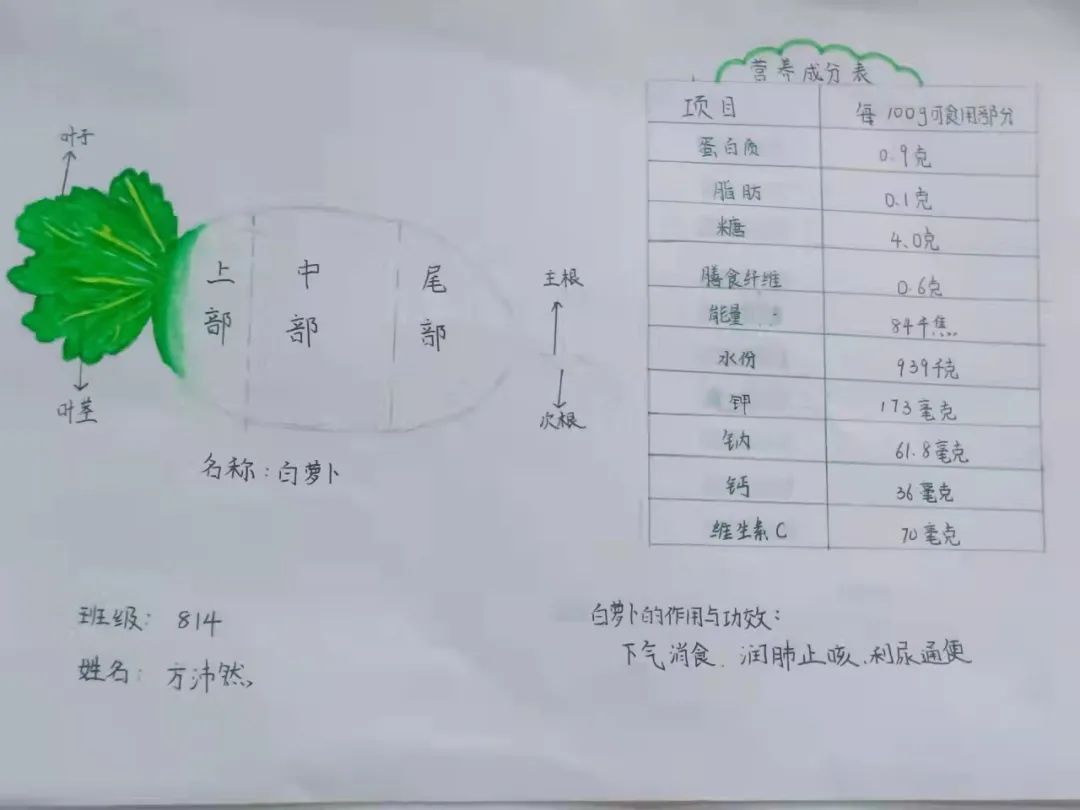 叶子
叶茎
上部
中部
尾部
主根
次根
名称：白萝卜
班级：814
姓名：方沛然
营养成分表
项目 每100g可食用部分
蛋白质 0.9克
脂肪 0.1克
糖 4.0克
膳食纤维 0.6克
能量 84千焦
水份 939千克
钾 173毫克
钠 61.8毫克
钙 36毫克
维生素C 70毫克
白萝卜的作用与功效：
下气消食、润肺止咳、利尿通便